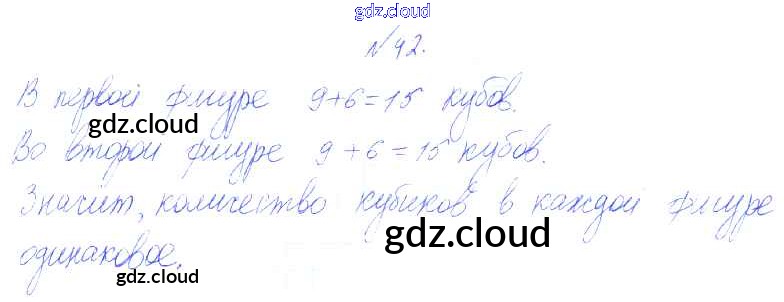 gdz.cloud
№92.
В первой фигуре 9+6=15 кубов.
gdz.cloud
Во второй фигуре 9+6=15 кубов.
Значит, количество кубиков в каждой фигуре
gdz.cloud
одинаковое.
gdz.cloud